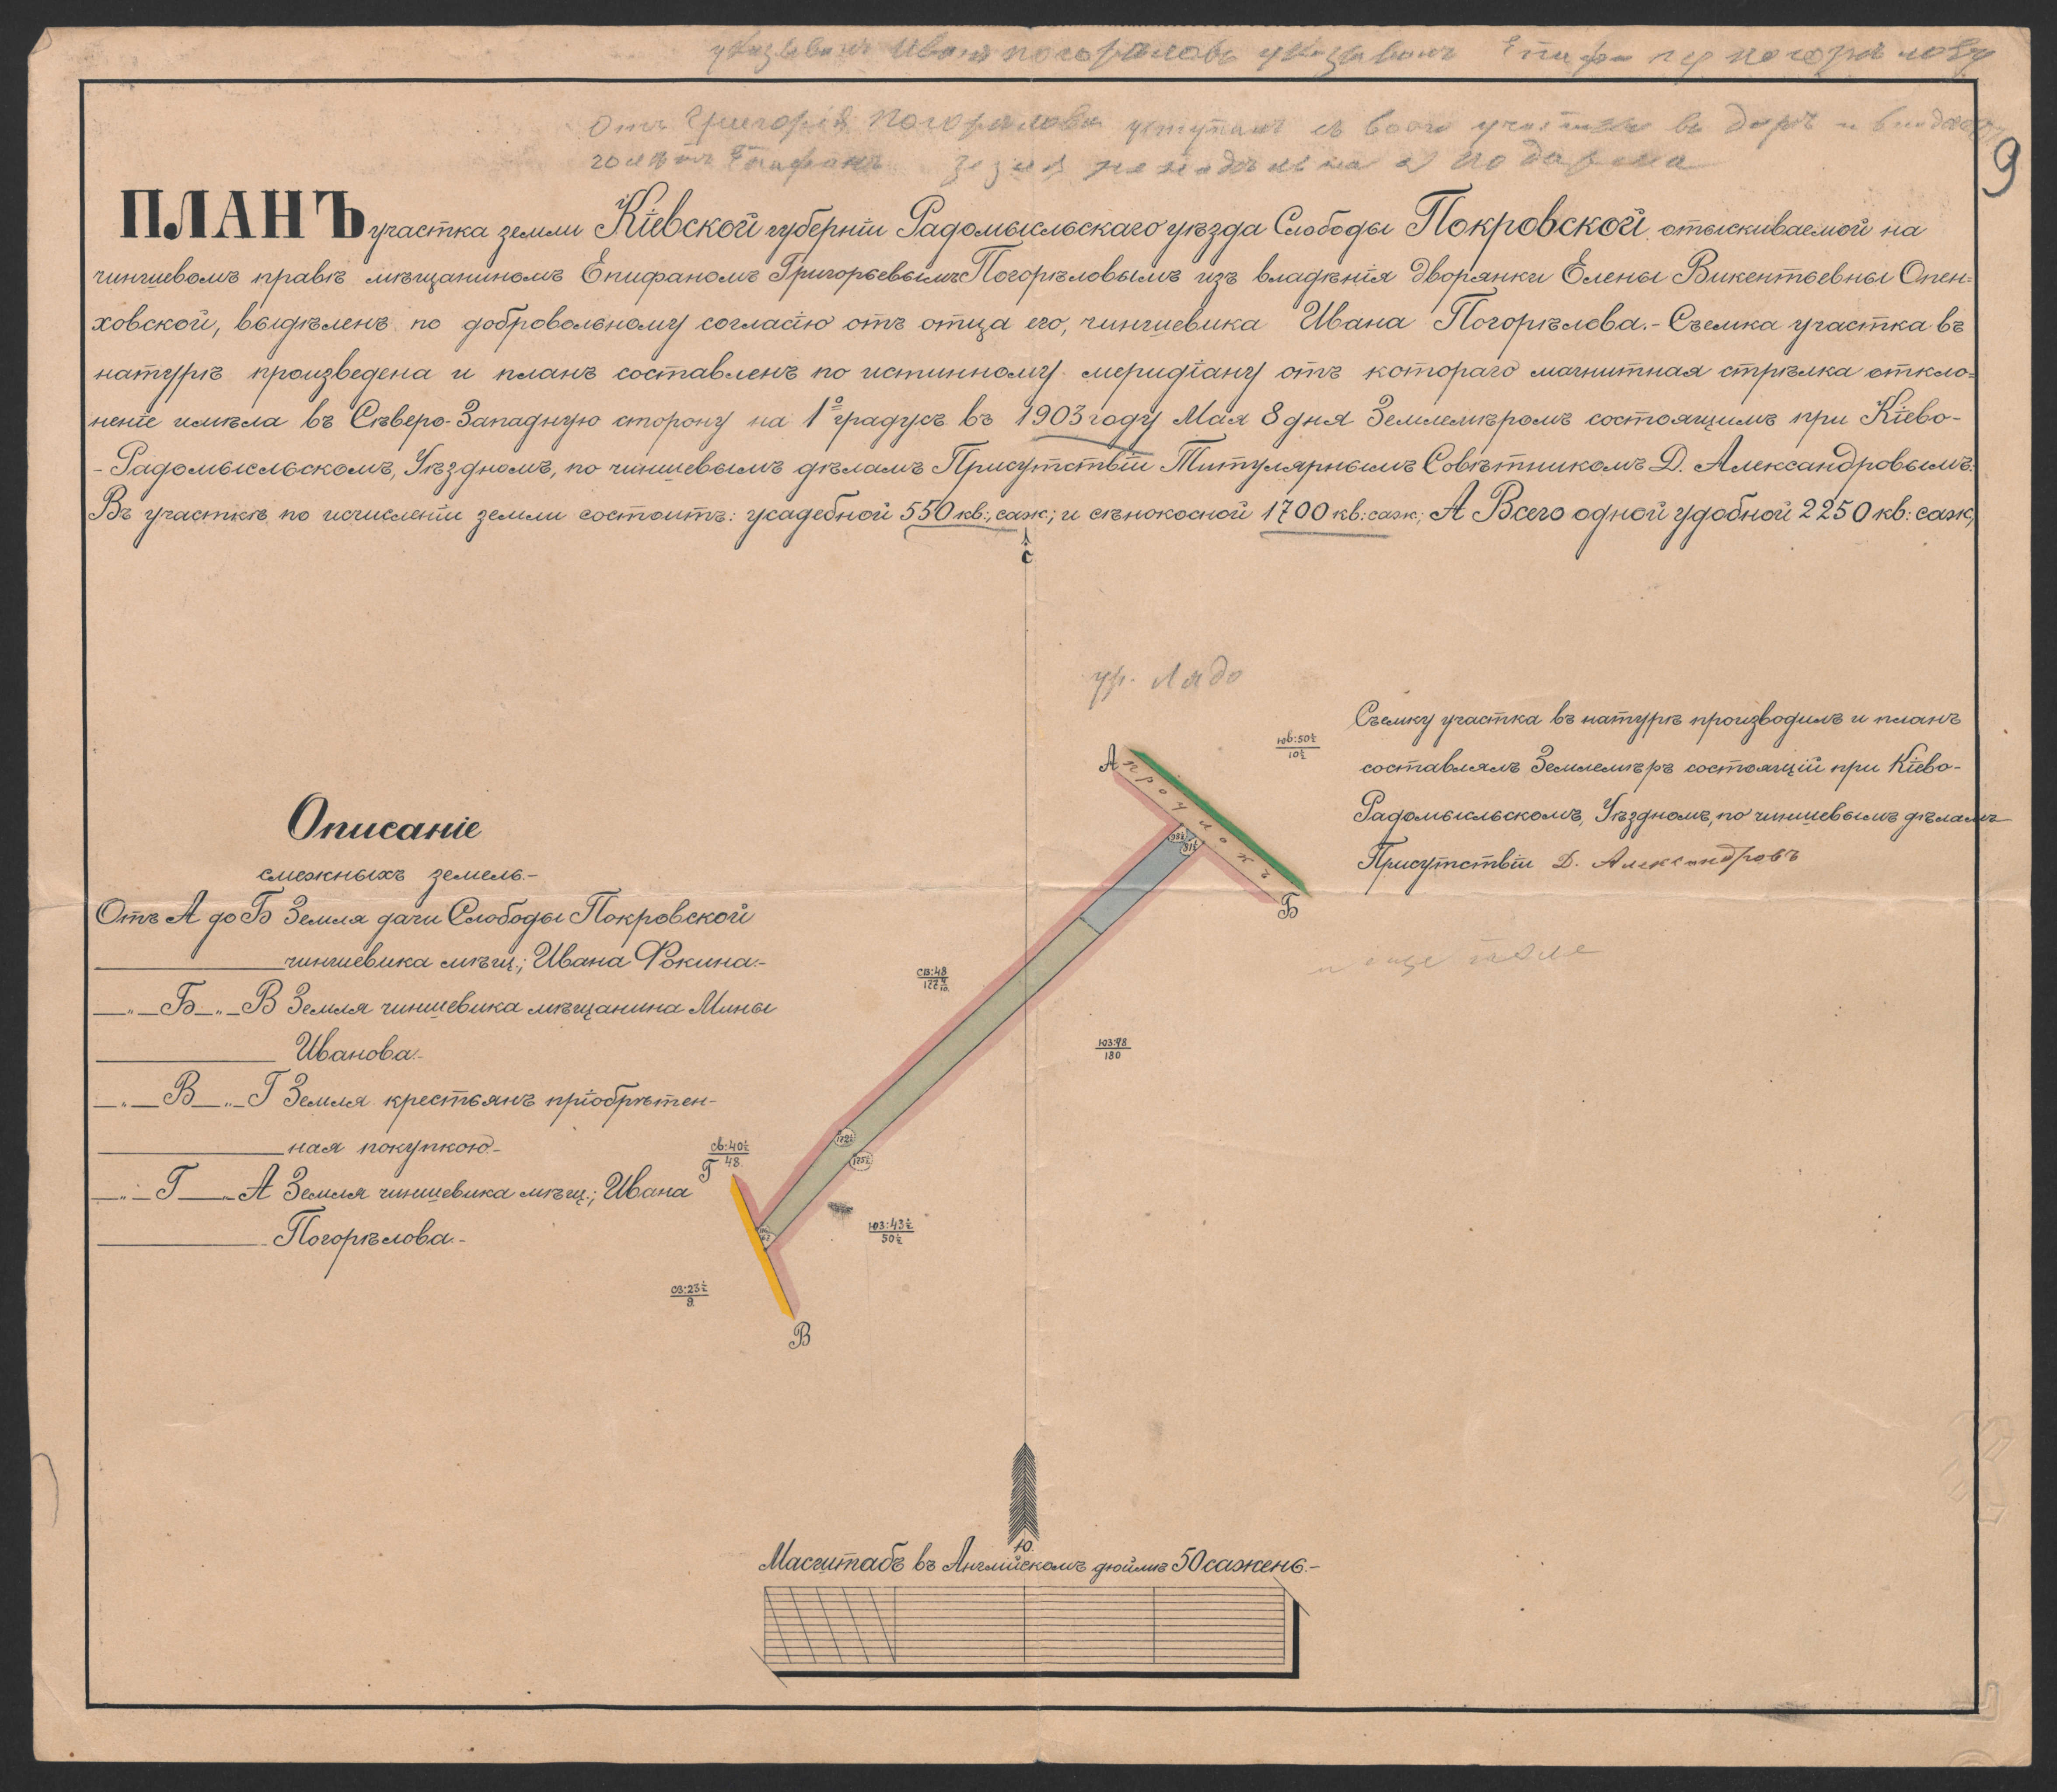 9
ПЛАНЪ участка земли Кіевской губерніи Радомысльскаго уѣзда Слободы Покровской отыскиваемой на
чиншевомъ правѣ мѣщаниномъ Епифаномъ Григорьевымъ Погорѣловымъ изъ владѣнія дворянки Елены Викентьевны Опен=
ховской, выдѣленъ по добровольному согласію отъ отца его, чиншевика Ивана Погорѣлова.- Съемка участка въ
натурѣ произведена и планъ составленъ по истинному меридіану отъ котораго магнитная стрѣлка откло=
неніе имѣла въ Сѣверо-Западную сторону на 1° градусъ въ 1903 году Мая 8 дня Землемѣромъ состоящимъ при Кіево-
-Радомысльскомъ, Уѣздномъ, по чиншевымъ дѣламъ Присутствіи Титулярнымъ Совѣтникомъ Д. Александровымъ.
Въ участкѣ по исчисленіи земли состоитъ: усадебной 550 кв: саж; и сѣнокосной 1700 кв: саж; А Всего одной удобной 2250 кв: саж;
С
ур. Лядо
Съемку участка въ натурѣ производилъ и планъ
составлялъ Землемѣръ состоящій при Кіево-
Радомысльскомъ, Уѣздномъ, по чиншевымъ дѣламъ
Присутствіи Д. Александровъ
ЮВ:50½
10½
А
проулокъ
Б
Описаніе
смежныхъ земель.-
Отъ А до Б Земля дачи Слободы Покровской
чиншевика мѣщ; Ивана Фокина.-
„ Б „ В Земля чиншевика мѣщанина Мины
Иванова.-
„ В „ Г Земля крестьянъ пріобрѣтен-
ная покупкою.-
„ Г „ А Земля чиншевика мѣщ; Ивана
Погорѣлова.-
СВ:48
ЮЗ:48
180
172½
175½
СВ:40½
48
Г
ЮЗ:43½
50½
СЗ:23½
9
В
Ю
Масштабъ въ Англійскомъ дюймѣ 50 сажень.-